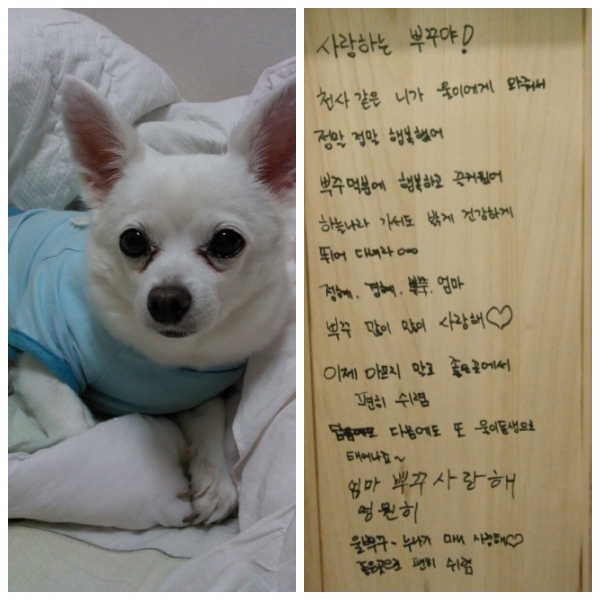 사랑하는 뿌꾸야!
천사같은 니가 울이에게 와줘서
정말 정말 행복했어
뿌꾸덕분에 행복하고 즐거웠어
하늘나라 가서도 밝게 건강하게
뛰어 다녀라
엄마
뿌꾸 많이 많이 사랑해♡
이제 아프지 말고 좋은곳에서
편히 쉬렴
다음에도 또 울이동생으로
태어나죠~
엄마 뿌꾸 사랑해
영원히
울뿌꾸~ 누나가 사랑해♡
좋은곳으로 편히 쉬렴